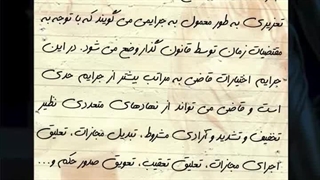 تعزیری به طور معمول به جرایمی می گویند که با توجه به
مقتضیات زمان توسط قانون گذار وضع می شود. در این
جرایم اختیارات قاضی به مراتب بیشتر از جرایم حدی
است و قاضی می تواند از نهادهای متعددی نظیر
تخفیف و تشدید و آزادی مشروط، تبدیل مجازات، تعلیق
اجرای مجازات، تعلیق تعقیب، تعویق صدور حکم و...